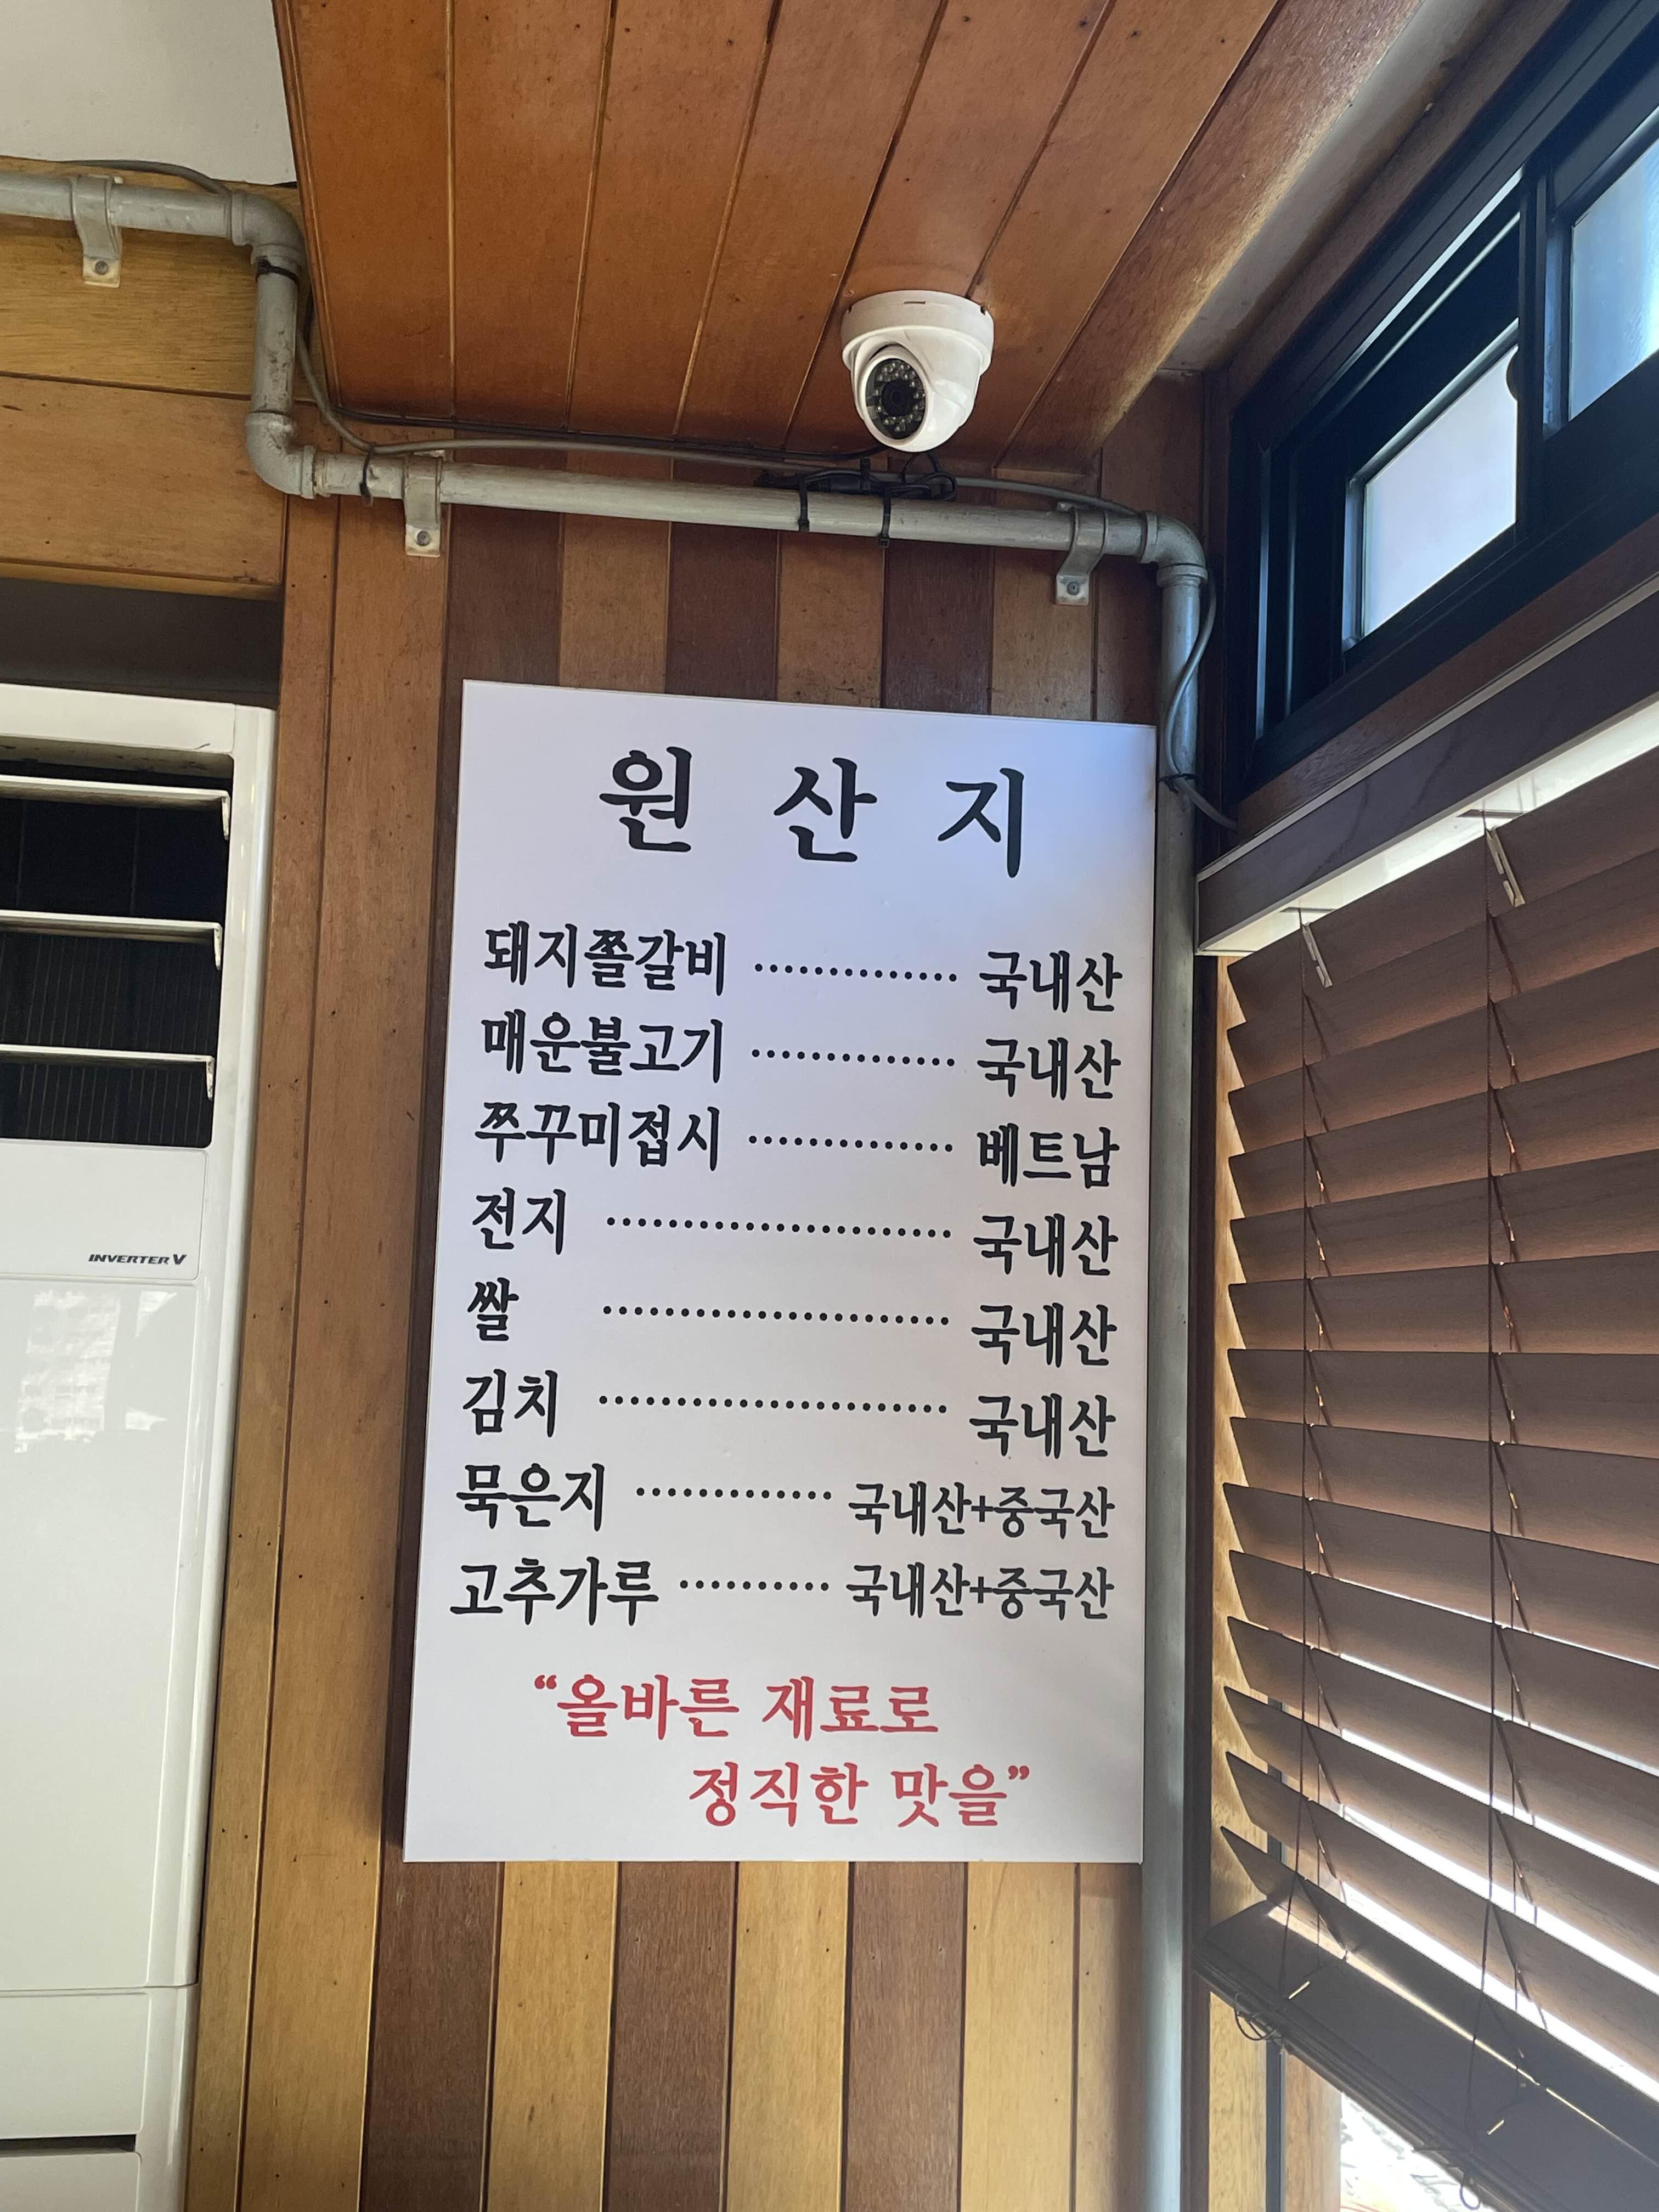 원 산 지
돼지쫄갈비 ·············· 국내산
매운불고기 ·············· 국내산
쭈꾸미접시 ·············· 베트남
전지 ······················· 국내산
쌀 ······················· 국내산
김치 ······················· 국내산
묵은지 ············· 국내산+중국산
고추가루 ·········· 국내산+중국산
“올바른 재료로
정직한 맛을”
INVERTER V